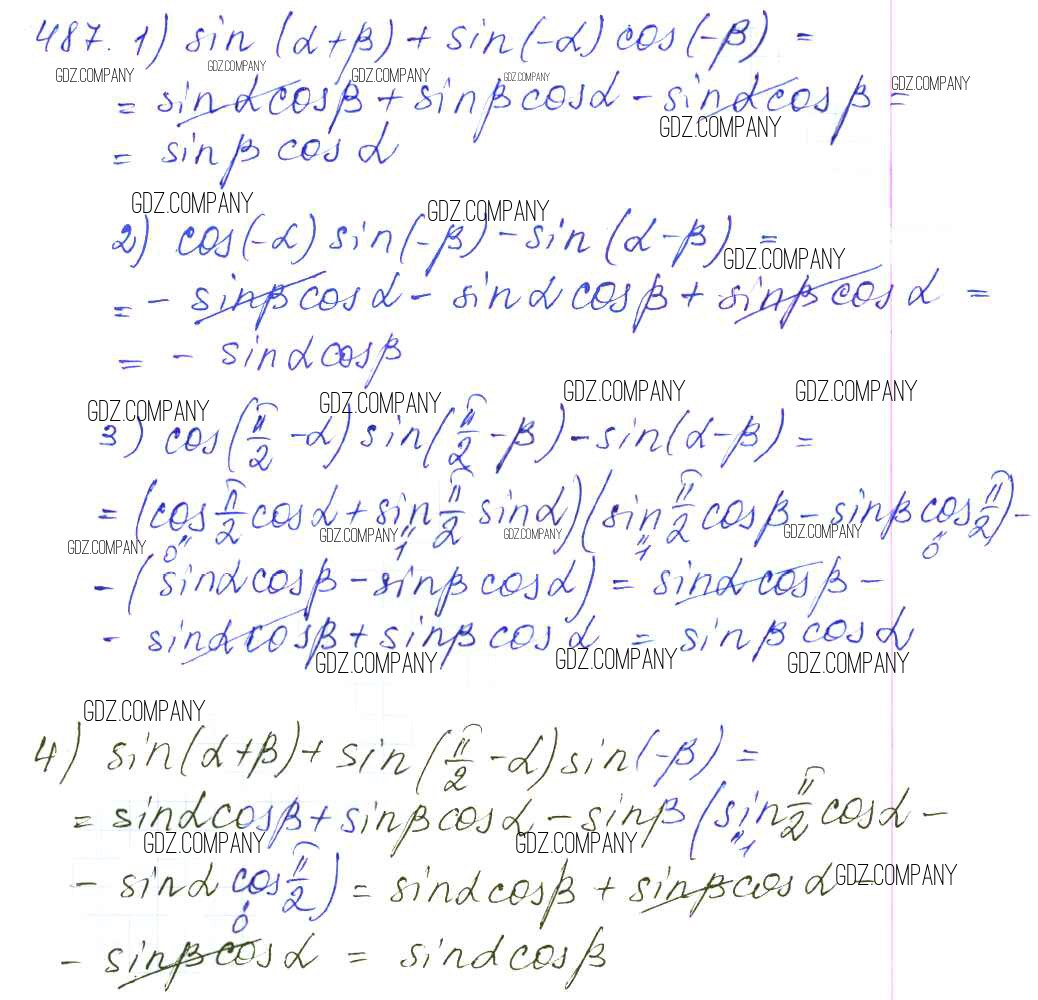 487. 1) sin (α+β) + sin(-α) cos(-β) =
GDZ.COMPANY GDZ.COMPANY GDZ.COMPANY GDZ.COMPANY GDZ.COMPANY
= sinα cosβ + sinβ cosα - sinα cosβ =
GDZ.COMPANY
= sinβ cosα
GDZ.COMPANY GDZ.COMPANY
2) cos(-α) sin(-β) - sin (α-β) =
GDZ.COMPANY
= - sinβ cosα - sinα cosβ + sinβ cosα =
= - sinα cosβ
GDZ.COMPANY GDZ.COMPANY GDZ.COMPANY GDZ.COMPANY
3) cos(π/2 - α) sin(π/2 - β) - sin(α-β) =
= (cos π/2 cosα + sin π/2 sinα)(sin π/2 cosβ - sinβ cos π/2) -
GDZ.COMPANY GDZ.COMPANY GDZ.COMPANY GDZ.COMPANY
"0 "1 "1 "0
- (sinα cosβ - sinβ cosα) = sinα cosβ -
- sinα cosβ + sinβ cosα = sinβ cosα
GDZ.COMPANY GDZ.COMPANY GDZ.COMPANY
GDZ.COMPANY
4) sin(α+β) + sin(π/2 - α) sin(-β) =
= sinα cosβ + sinβ cosα - sinβ (sin π/2 cosα -
"1
GDZ.COMPANY GDZ.COMPANY
- sinα cos π/2) = sinα cosβ + sinβ cosα -
GDZ.COMPANY
"0
- sinβ cosα = sinα cosβ